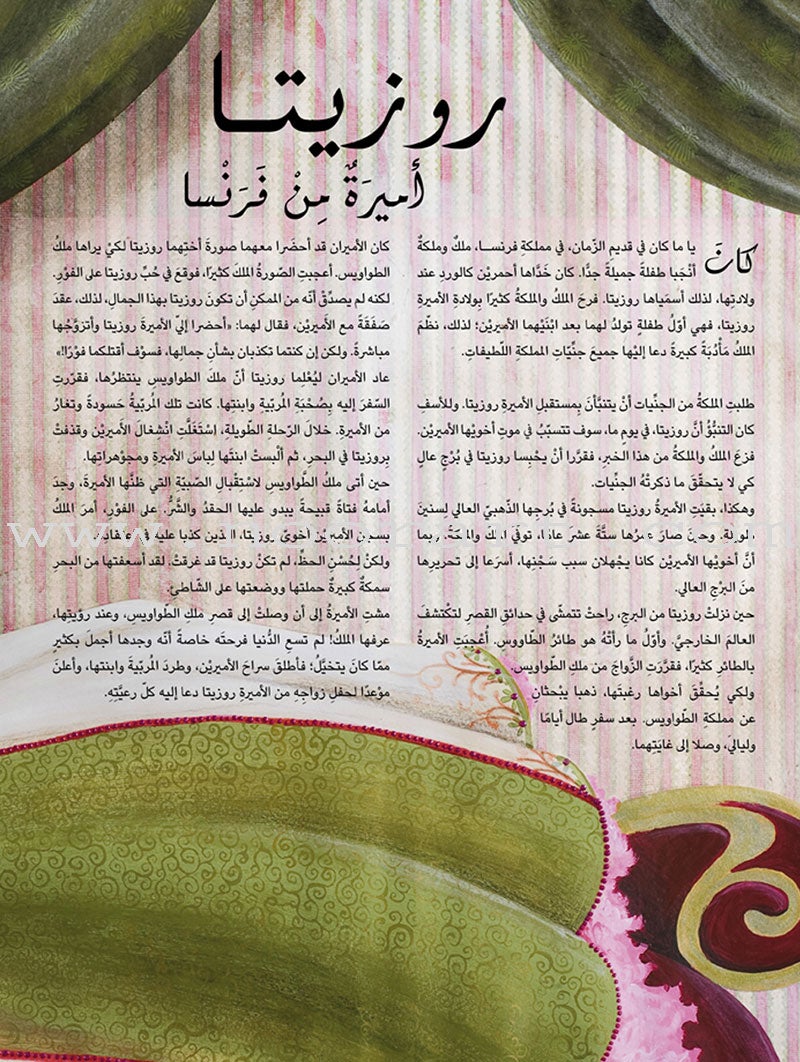 روزيتا
أميرَةٌ مِنْ فَرَنْسا
كانَ يا ما كان في قديمِ الزّمان، في مملكةِ فرنســا، ملكٌ وملكةٌ
أنْجَبا طفلةً جميلةً جدًّا. كان خَدَّاها أحمريْن كالوردِ عند
ولادتِها، لذلك أسمَياها روزيتا. فرحَ الملكُ والملكةُ كثيرًا بِولادةِ الأميرةِ
روزيتا، فهي أوّلُ طفلةٍ تولدُ لهما بعد ابْنَيْهما الأميرَيْن؛ لذلك، نظّمَ
الملكُ مَأْدُبَةً كبيرةً دعا إليْها جميعَ جنّيّاتِ المملكةِ اللّطيفاتِ.
طلبتِ الملكةُ من الجنّيات أنْ يتنبَّأنَ بِمستقبلِ الأميرةِ روزيتا. وللأسفِ
كان التنبُّؤُ أنَّ روزيتا، في يومٍ ما، سوف تتسبّبُ في موتِ أخويْها الأميرَيْن.
فزعَ الملكُ والملكةُ من هذا الخبرِ، فقرَّرا أنْ يحْبِسا روزيتا في بُرْجٍ عالٍ
كي لا يتحقّقَ ما ذكرتْهُ الجنّيات.
وهكذا، بقيَتِ الأميرةُ روزيتا مسجونةً في بُرجِها الذّهبيِّ العالي لِسنينَ
طويلة. وحينَ صارَ عمرُها ستَّةَ عشرَ عامًا، توفّيَ الملك والملكة. وبما
أنَّ أخويْها الأميرَيْن كانا يجْهلان سبب سَجْنِها، أسرَعا إلى تحريرِها
منَ البرْجِ العالي.
حين نزلتْ روزيتا من البرجِ، راحتْ تتمشّى في حدائقِ القصرِ لتكْتشفَ
العالمَ الخارجيَّ. وأوّلُ ما رأتْهُ هو طائرُ الطّاووسِ. أُعْجِبَتِ الأميرةُ
بالطائرِ كثيرًا، فقرَّرتِ الزَّواجَ من ملكِ الطّواويس.
ولكي يُحقّقَ أخواها رغبتَها، ذهبا يبْحثانِ
عن مملكةِ الطّواويس. بعد سفرٍ طال أيامًا
ولياليَ، وصلا إلى غايَتِهما.
كان الأميران قد أحضرا معهما صورةَ أختِهما روزيتا لكيْ يراها ملكُ
الطواويس. أعجبتِ الصّورةُ الملكَ كثيرًا، فوقعَ في حُبِّ روزيتا على الفوْرِ.
لكنه لم يصدِّقْ أنّه من الممكنِ أن تكونَ روزيتا بهذا الجمالِ، لذلك، عقدَ
صَفَقَةً مع الأَميريْن، فقال لهما: «أحضرا إليّ الأميرةَ روزيتا وأتزوَّجُها
مباشرةً. ولكن إن كنتما تكذبان بشأنِ جمالِها، فسوْف أقتلكما فورًا!»
عاد الأميران ليُعْلِما روزيتا أنّ ملكَ الطواويس ينتظرُها، فقرّرتِ
السّفرَ إليه بِصُحْبَةِ المُربّيةِ وابنتِها. كانت تلك المُربّيةُ حَسودةً وتغارُ
من الأميرةِ. خلالَ الرّحلة الطّويلةِ، اِسْتغَلَّتِ انْشغالَ الأَميريْن وقذفتْ
بِروزيتا في البحرِ، ثم ألْبستْ ابنتَها لِباسَ الأميرةِ ومجوْهراتِها.
حين أتى ملكُ الطَّواويسِ لاسْتقْبالِ الصّبيّةِ التي ظنَّها الأميرةَ، وجدَ
أمامهُ فتاةً قبيحةً يبدو عليها الحقدُ والشَّرُّ. على الفوْرِ، أمرَ الملكُ
بسجنِ الأميريْن أخوَيْ روزيتا، الذين كذبا عليه في
ولكنْ لِحُسْنِ الحظِّ، لم تكنْ روزيتا قد غرقتْ. لقد أسعفتها من البحرِ
سمكةٌ كبيرةٌ حملتها ووضعتها على الشّاطئ.
مشتِ الأميرةُ إلى أن وصلتْ إلى قصرِ ملكِ الطّواويسِ، وعند رؤيتِها،
عرفها الملكُ! لم تسعِ الدُّنيا فرحتَه خاصةً أنّه وجدها أجملَ بكثيرٍ
ممّا كانَ يتخيَّلُ؛ فأطلقَ سراحَ الأميريْن، وطردَ المُربّيةَ وابنتها، وأعلنَ
موْعدًا لحفلِ زواجِهِ من الأميرةِ روزيتا دعا إليه كلّ رعيَّتِهِ.